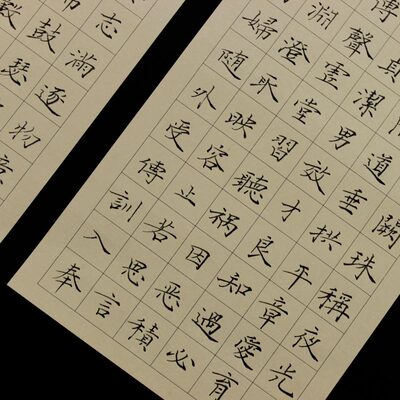 闕珠稱夜光
道垂拱平章愛育
潔男效才良知過必
聲虛堂習聽禍因惡積
淵澄取映容止若思言
婦隨外受傅訓入奉
志滿逐物意
鼓瑟